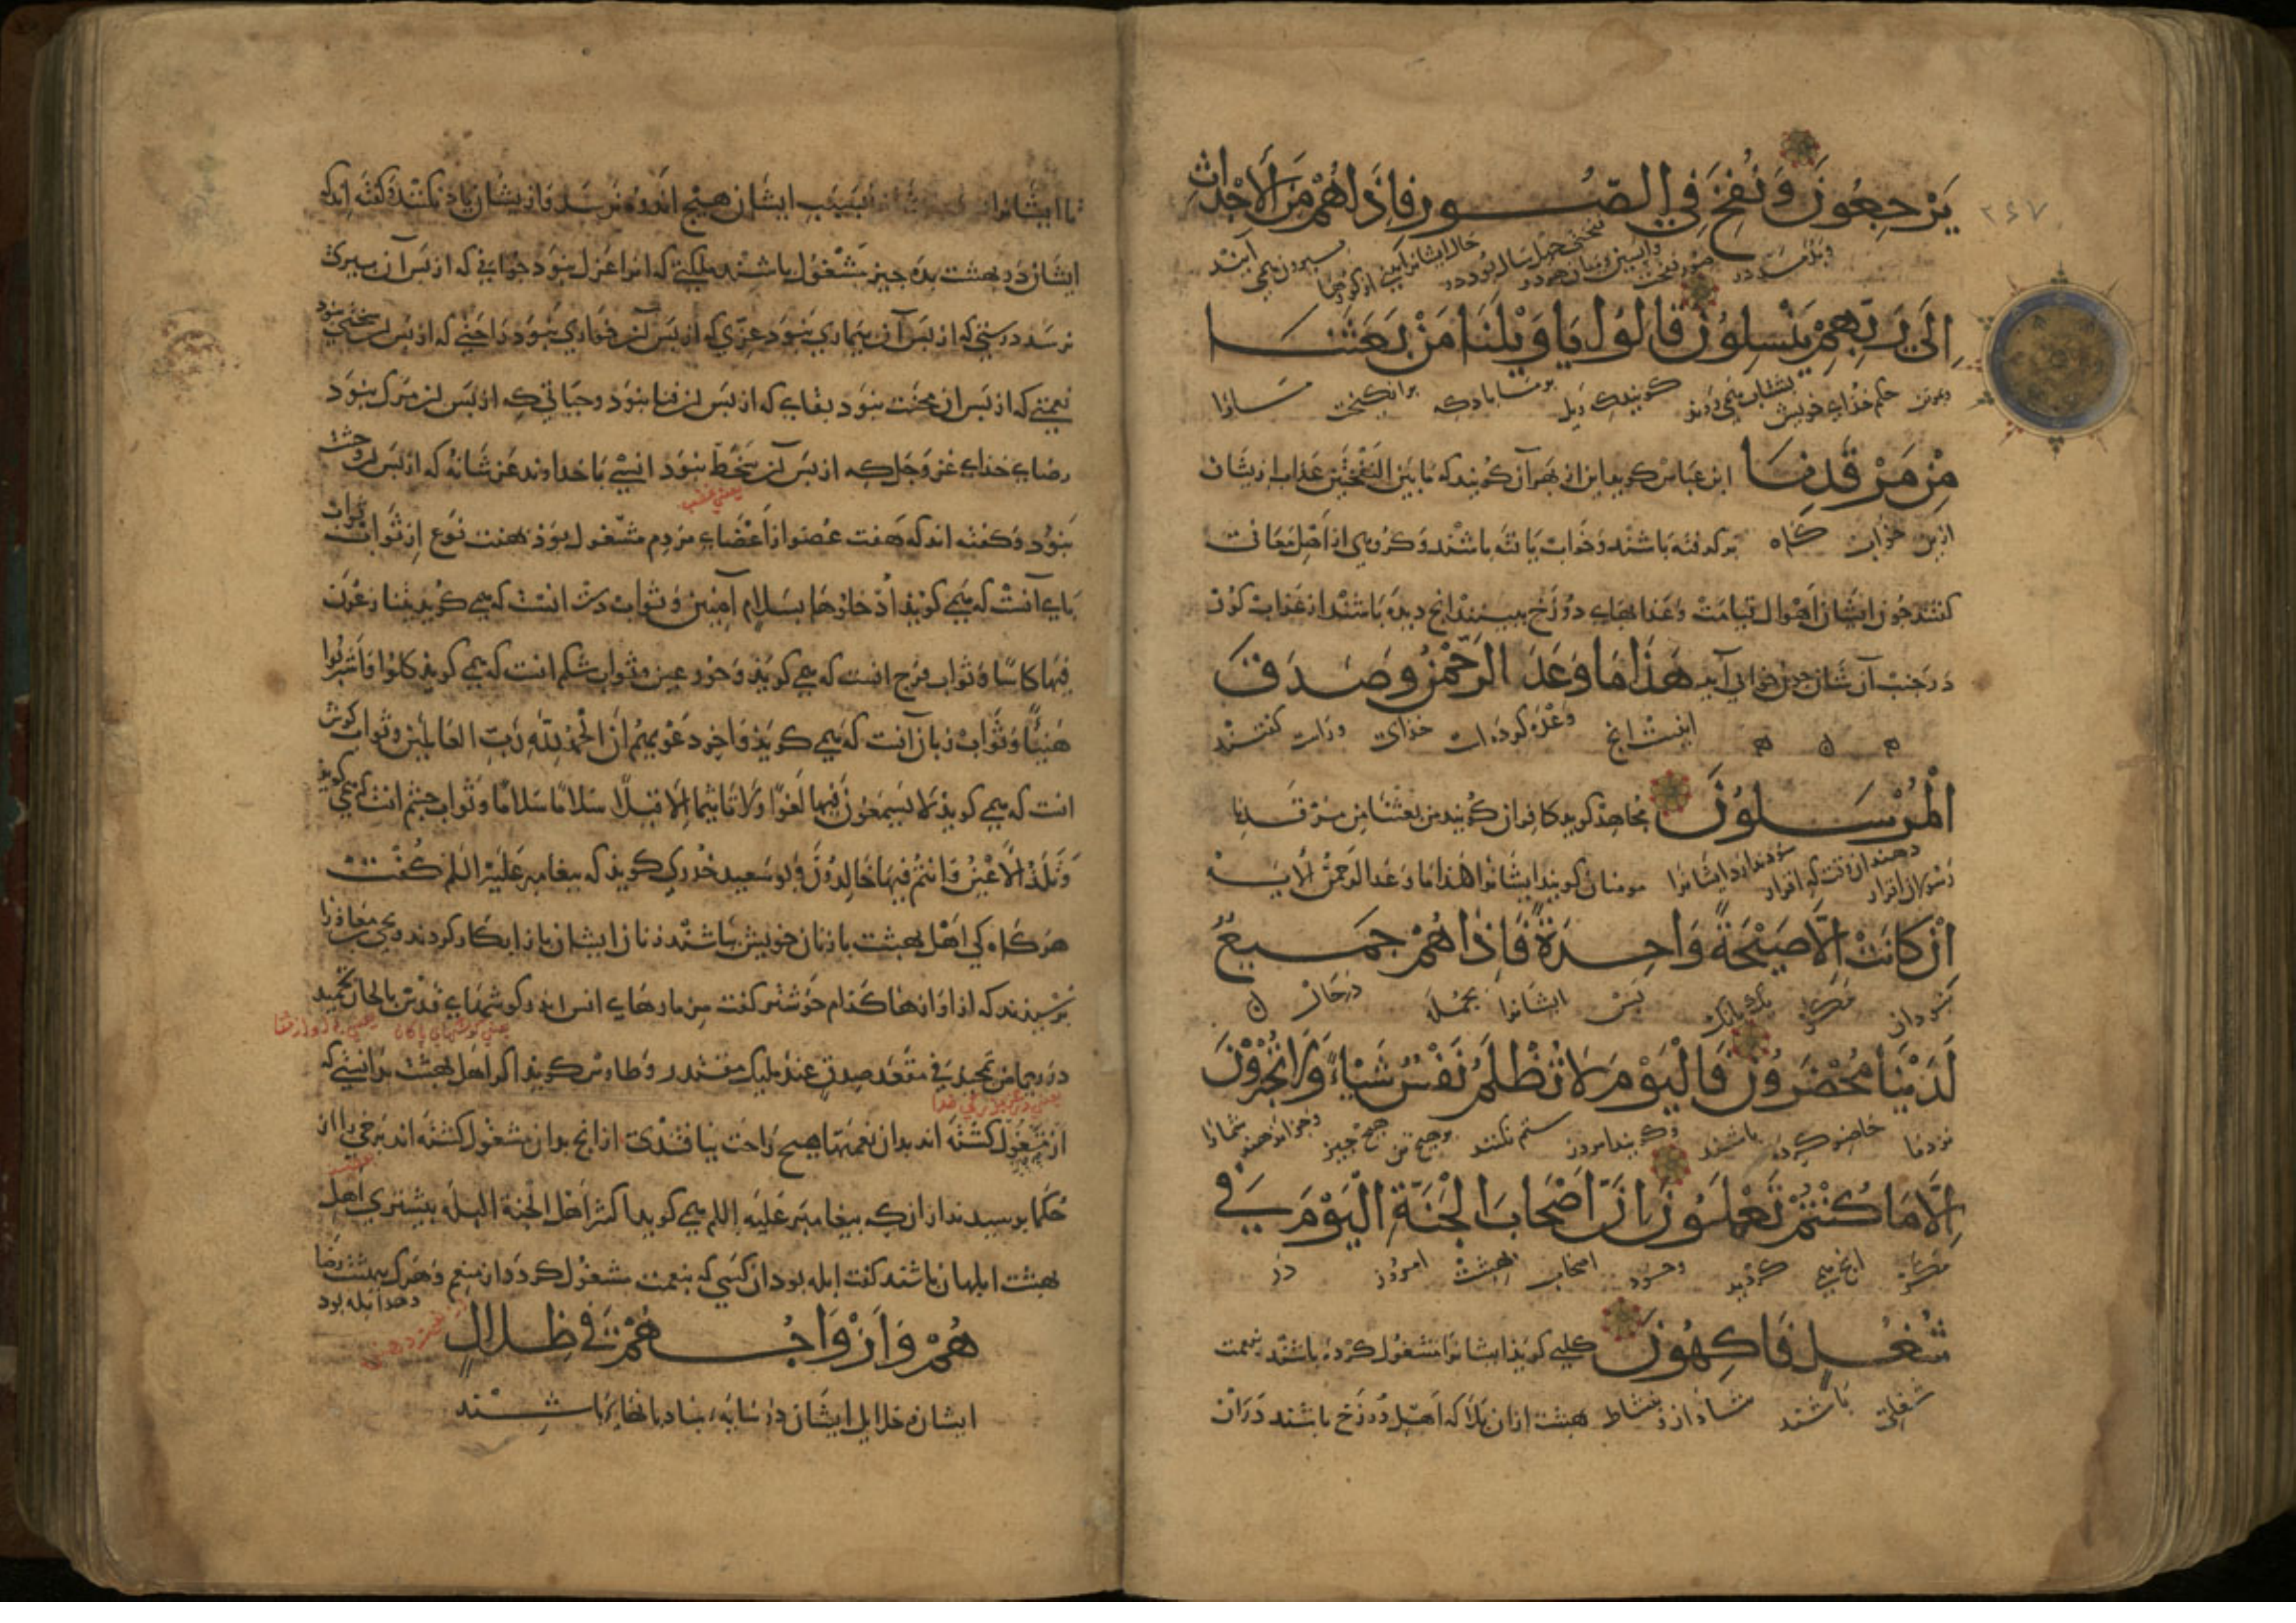 ۲۶۷
يَرْجِعُونَ وَنُفِخَ فِي الصُّورِ فَإِذَا هُمْ مِنَ الْأَجْدَاثِ
إِلَى رَبِّهِمْ يَنْسِلُونَ قَالُوا يَا وَيْلَنَا مَنْ بَعَثَنَا
حکم خدای خویش بشتاب می روند کویند که ویل بر ما باد که برانکیخت ما را
مِنْ مَرْقَدِنَا ابن عباس کوید این از بهر آن کویند که ما بین النفختین عذاب از یشان
ازین خواب کاه برکرفته باشند و خواب یافته باشند و کروهی از اهل معانی
کفتند چون ایشان اهوال قیامت و عذابهای دوزخ ببینند انج دیده باشند از عذاب کور
در جنب آن شان چون خوابی آید هَذَا مَا وَعَدَ الرَّحْمَنُ وَصَدَقَ
اینست انج وعده کرده است خدای و راست کفتند
الْمُرْسَلُونَ مجاهد کوید کافران کویند من بعثنا من مرقدنا
مومنان کویند ایشانرا هذا ما وعد الرحمن الایه
إِنْ كَانَتْ إِلَّا صَيْحَةً وَاحِدَةً فَإِذَا هُمْ جَمِيعٌ
نبود آن مکر یک بانک پس ایشانرا بجمله
لَدَيْنَا مُحْضَرُونَ فَالْيَوْمَ لَا تُظْلَمُ نَفْسٌ شَيْئًا وَلَا تُجْزَوْنَ
نزد ما حاضر کرده باشند کویند امروز ستم نکنند بر هیچ تن هیچ چیز و جزا ندهند شما را
إِلَّا مَا كُنْتُمْ تَعْمَلُونَ إِنَّ أَصْحَابَ الْجَنَّةِ الْيَوْمَ فِي
مکر انج می کردید اصحاب بهشت امروز در
شُغُلٍ فَاكِهُونَ کلبی کوید ایشانرا مشغول کرده باشند بنعمت
شغلی باشند شادان و بنشاط بهشت از ان بلا که اهل دوزخ باشند در ان
تا ایشانرا بسبب ایشان هیچ اندوه نرسد و از یشان یاد نکنند و کفته اند که
ایشان در بهشت بده چیز مشغول باشند ملکتی که انرا عزل نبود جوانیی که از پس آن پیری
نرسد درستی که از پس آن بیماری نبود عزی که از پس آن خواری نبود راحتی که از پس ان سختی نبود
نعمتی که از پس ان محنت نبود بقای که از پس ان فنا نبود و حیاتی که از پس ان مرک نبود
رضای خدای عز و جل که از پس آن سخط نبود انسی با خداوند عز شانه که از پس ان وحشت
یعنی غضب
نبود و کفته اند که هفت عضو از اعضای مردم مشغول بود بهفت نوع از ثواب ثواب
پای آنست که می کوید ادخلوها بسلام آمنین و ثواب دست انست که می کوید یتنازعون
فیها کاسا و ثواب فرج انست که می کوید و حور عین و ثواب شکم انست که می کوید کلوا واشربوا
هنیئا و ثواب زبان آنست که می کوید و اخر دعویهم ان الحمد لله رب العالمین و ثواب کوش
انست که می کوید لا یسمعون فیها لغوا ولا تاثیما الا قیلا سلاما سلاما و ثواب چشم انست که می کوید
وتلذ الاعین وانتم فیها خالدون و بو سعید خدری کوید که پیغامبر علیه السلم کفت
هرکاه کی اهل بهشت با زنان خویش باشند زنان ایشان باز ابکار کردند و یحیی معاذ را
پرسیدند که از اوازها کدام خوشتر کفت مزمارهای انس اندر کوشهای قدس بالحان تحمید
در ریاض تمجید فی مقعد صدق عند ملیک مقتدر و طاوس کوید اکر اهل بهشت بدانستی که
از که مشغول کشته اند بدان نعمتها هیچ راحت نیافتندی از انج بدان مشغول کشته اند برخی را از
حکما پرسیدند از ان که پیغامبر علیه السلم می کوید اکثر اهل الجنة البله بیشتری اهل
بهشت ابلهان باشند کفت ابله بود ان کسی که بنعمت مشغول کردد از منعم و هرک ببهشت رضا
دهد ابله بود
هُمْ وَأَزْوَاجُهُمْ فِي ظِلَالٍ
ایشان و حلایل ایشان در سایه باشند